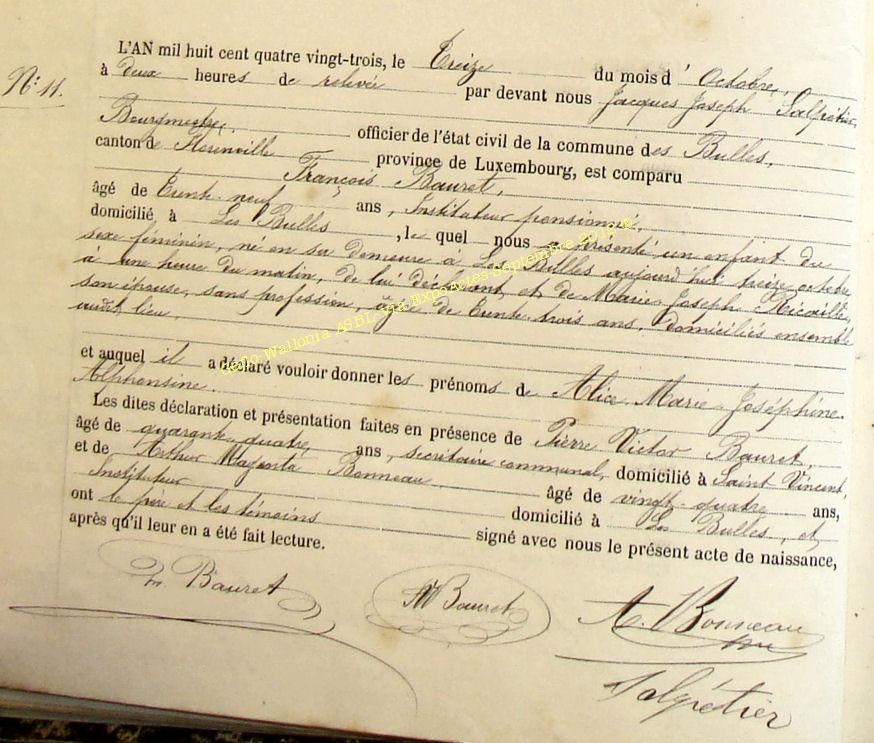 L'AN mil huit cent quatre vingt-trois, le Treize du mois d'Octobre,
N: 11. à deux heures de relevée par devant nous Jacques Joseph Salpétier,
Bourgmestre, officier de l'état civil de la commune des Bulles,
canton de Florenville province de Luxembourg, est comparu
François Bauret,
âgé de Trente-neuf ans, Instituteur pensionné,
domicilié à Les Bulles, le quel nous a présenté un enfant du
sexe féminin, né en sa demeure à Les Bulles aujourd'hui treize octobre
à une heure du matin, de lui déclarant et de Marie-Joseph Ricaille,
son épouse, sans profession, âgée de Trente-trois ans, domiciliés ensemble
audit lieu,
et auquel il a déclaré vouloir donner les prénoms de Alice-Marie-Joséphine-
Alphonsine.
Les dites déclaration et présentation faites en présence de Pierre Victor Bauret,
âgé de quarante-quatre ans, secrétaire communal, domicilié à Saint Vincent,
et de Arthur Magenta Bonneau âgé de vingt-quatre ans,
Instituteur domicilié à Les Bulles, et
ont le père et les témoins signé avec nous le présent acte de naissance,
après qu'il leur en a été fait lecture.
Bauret Bauret A. Bonneau
Salpétier
Geno-Wallonia ASBL via ExpoActes Septembre